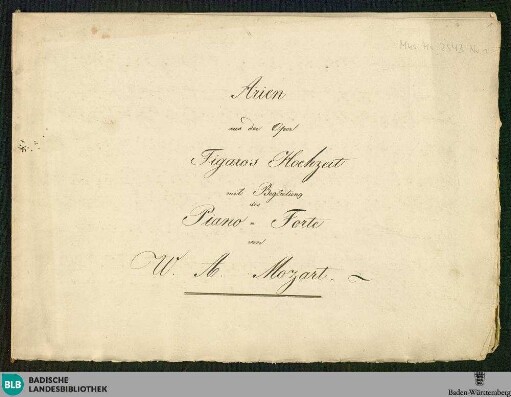 Arien
aus der Oper
Figaro's Hochzeit
mit Begleitung
des
Piano = Forte
von
W. A. Mozart.
BLB BADISCHE
LANDESBIBLIOTHEK
Baden-Württemberg